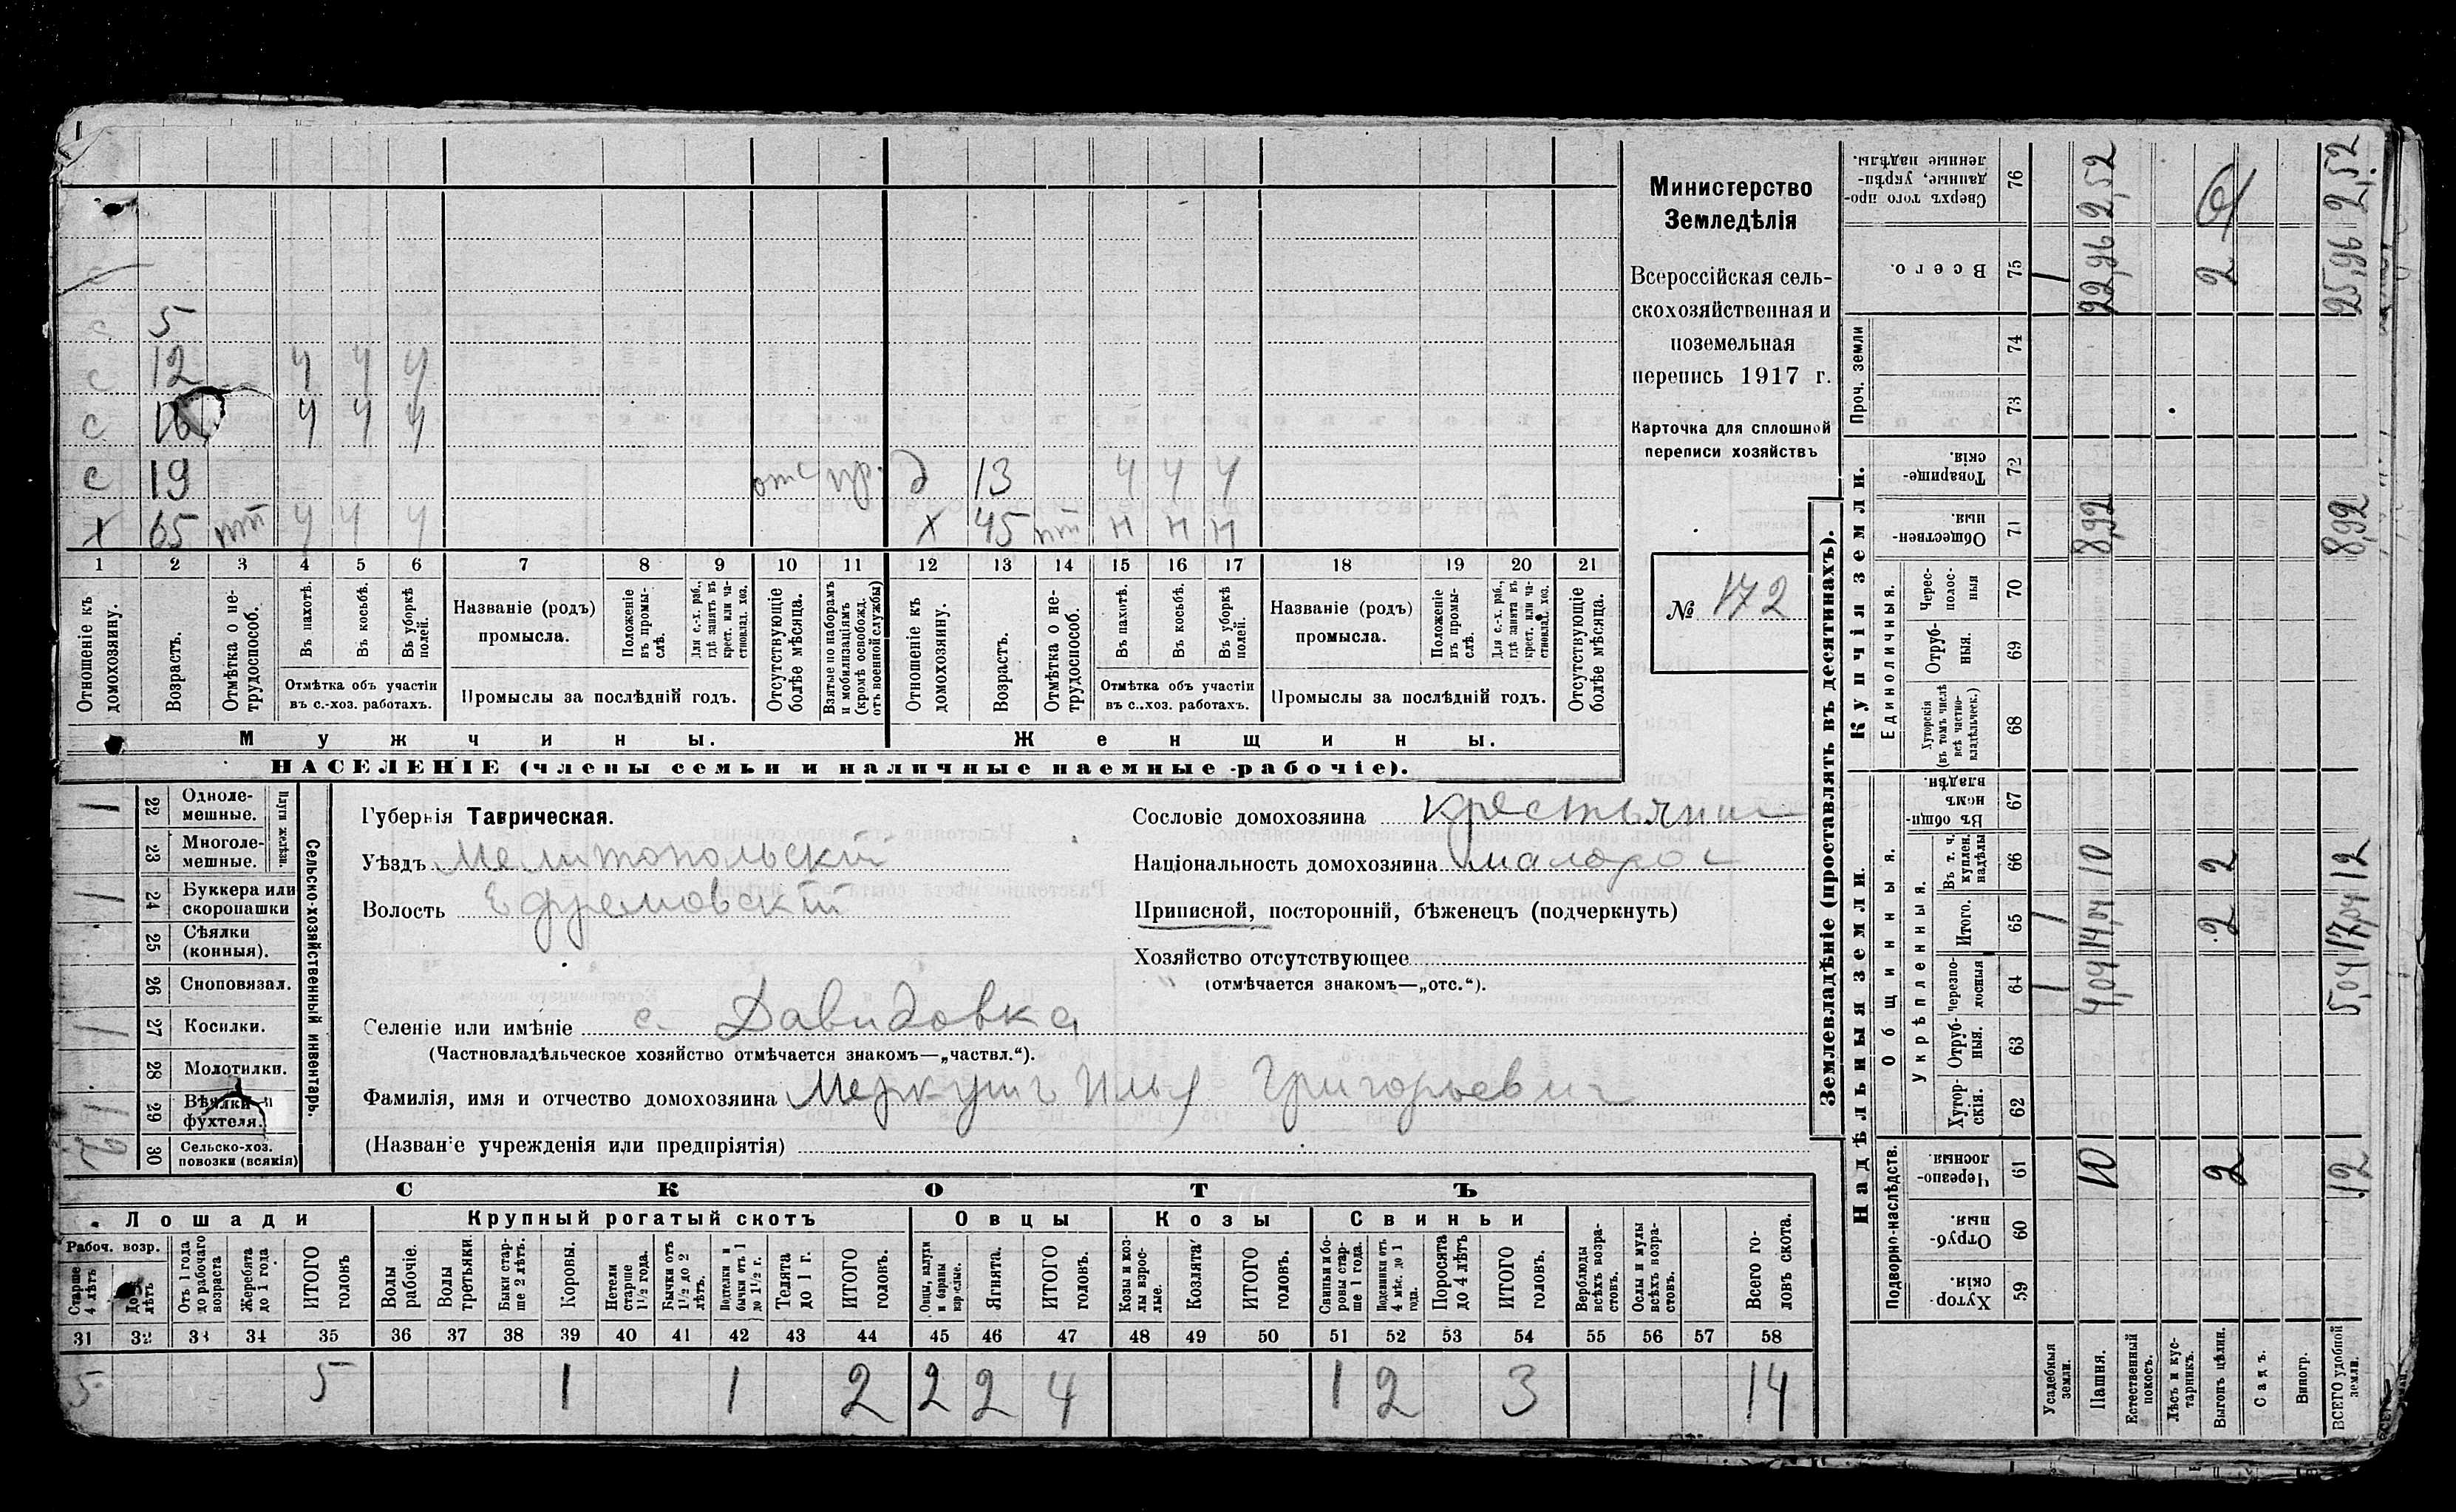 с 5
с 12 ч ч ч
с 16 ч ч ч
с 19 отс пр. д 13 ч ч ч
х 65 пт ч ч ч х 45 пт н н н
1 2 3 4 5 6 7 8 9 10 11 12 13 14 15 16 17 18 19 20 21
Отношеніе къ домохозяину.
Возрастъ.
Отмѣтка о не-трудоспособ.
Въ пахотѣ.
Въ косьбѣ.
Въ уборкѣ полей.
Отмѣтка объ участіи
въ с.-хоз. работахъ.
Названіе (родъ)
промысла.
Положеніе въ промы-слѣ.
Для с.-х. раб., гдѣ занятъ въ крест. или ча-стновлад. хоз.
Промыслы за послѣдній годъ.
Отсутствующіе болѣе мѣсяца.
Взятые по наборамъ и мобилизаціямъ (кромѣ освобожд. отъ военной службы)
Отношеніе къ домохозяину.
Возрастъ.
Отмѣтка о не-трудоспособ.
Въ пахотѣ.
Въ косьбѣ.
Въ уборкѣ полей.
Отмѣтка объ участіи
въ с..хоз. работахъ.
Названіе (родъ)
промысла.
Положеніе въ промы-слѣ.
Для с.-х. раб., гдѣ занята въ крест. или ча-стновлад. хоз.
Промыслы за послѣдній годъ.
Отсутствующіе болѣе мѣсяца.
Мужчины. Женщины.
НАСЕЛЕНІЕ (члены семьи и наличные наемные рабочіе).
Министерство
Земледѣлія
Всероссійская сель-
скохозяйственная и
поземельная
перепись 1917 г.
Карточка для сплошной
переписи хозяйствъ
№ 172
Сельско-хозяйственный инвентарь.
Плуги желѣзн.
1 22 Одноле-мешные.
23 Многоле-мешные.
1 24 Буккера или скоропашки
25 Сѣялки (конныя).
26 Сноповязал.
1 27 Косилки.
28 Молотилки.
1 29 Вѣялки и фухтеля.
2 30 Сельско-хоз. повозки (всякія)
Губернія Таврическая.
Уѣздъ Мелитопольскій
Волость Ефремовскій
Селеніе или имѣніе с. Давидовка
(Частновладѣльческое хозяйство отмѣчается знакомъ—„частвл.“).
Фамилія, имя и отчество домохозяина Меркушъ Илья Григорьевич
(Названіе учрежденія или предпріятія)
Сословіе домохозяина крестьянин
Національность домохозяина малорос
Приписной, посторонній, бѣженецъ (подчеркнуть)
Хозяйство отсутствующее
(отмѣчается знакомъ—„отс.“).
СКОТЪ
Лошади Крупный рогатый скотъ Овцы Козы Свиньи
Рабоч. возр.
Старше 4 лѣтъ
До 4 лѣтъ
Отъ 1 года до рабочаго возраста
Жеребята до 1 года
ИТОГО головъ
Волы рабочіе.
Волы третьяки.
Быки стар-ше 2 лѣтъ.
Коровы.
Нетели старше 1½ года.
Бычки отъ 1½ до 2 лѣтъ.
Подтелки и бычки отъ 1 до 1½ г.
Телята до 1 г.
ИТОГО головъ.
Овцы, валухи и бараны взрослые.
Ягнята.
ИТОГО головъ.
Козы и коз-лы взрос-лые.
Козлята
ИТОГО головъ.
Свиньи и бо-ровы стар-ше 1 года.
Подсвинки отъ 4 мѣс. до 1 года.
Поросята до 4 лѣтъ
ИТОГО головъ.
Верблюды всѣхъ возра-стовъ.
Ослы и мулы всѣхъ возра-стовъ.
Всего го-ловъ скота.
31 32 33 34 35 36 37 38 39 40 41 42 43 44 45 46 47 48 49 50 51 52 53 54 55 56 57 58
5 5 1 1 2 2 2 4 1 2 3 14
Землевладѣніе (проставлять въ десятинахъ).
Надѣльныя земли. Купчія земли.
Подворно-наслѣдств.
Общинныя.
Укрѣпленныя.
Единоличныя.
Проч. земли
Хутор-скія. 59
Отруб-ныя. 60
Черезпо-лосныя. 61
Хутор-скія. 62
Отруб-ныя. 63
Черезпо-лосныя 64
Итого. 65
Въ т. ч. куплен. надѣлы 66
Въ общин-номъ владѣн. 67
Хуторскія (въ томъ числѣ всѣ частно-владѣльческ.) 68
Отруб-ныя. 69
Черес-полос-ныя 70
Обществен-ныя. 71
Товарище-скія. 72
73
74
Всего. 75
Сверхъ того про-данные, укрѣп-ленные надѣлы. 76
Усадебныя земли. 1 1 1
Пашня. 10 4,04 14,04 10 8,92 22,96 2,52
Естественный покосъ.
Лѣсъ и кус-тарникъ.
Выгонъ цѣлин. 2 2 2 2
Садъ.
Виногр.
ВСЕГО удобной земли. 12 5,04 17,04 12 8,92 25,96 2,52